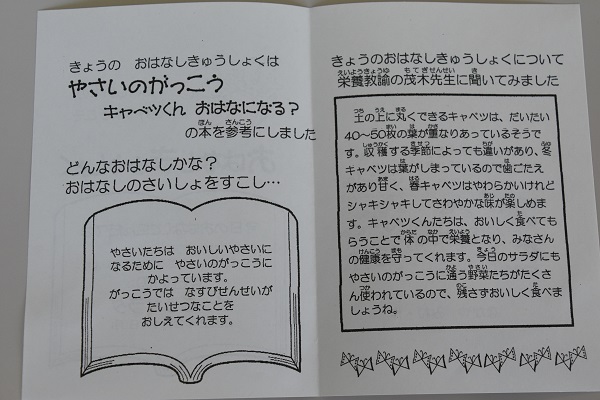 きょうの　おはなしきゅうしょくは
やさいのがっこう
キャベツくん　おはなになる？
の本を参考にしました
どんなおはなしかな？
おはなしのさいしょをすこし…
やさいたちは　おいしいやさいに
なるために　やさいのがっこうに
かよっています。
がっこうでは　なすびせんせいが
たいせつなことを
おしえてくれます。
きょうのおはなしきゅうしょくについて
栄養教諭の茂木先生に聞いてみました
土の上に丸くできるキャベツは、だいたい
40～50枚の葉が重なりあっているそうで
す。収穫する季節によっても違いがあり、冬
キャベツは葉がしまっているので歯ごたえ
があり甘く、春キャベツはやわらかいけれど
シャキシャキしてさわやかな味が楽しめま
す。キャベツくんたちは、おいしく食べても
らうことで体の中で栄養となり、みなさん
の健康を守ってくれます。今日のサラダにも
やさいのがっこうに通う野菜たちがたくさ
ん使われているので、残さずおいしく食べま
しょうね。